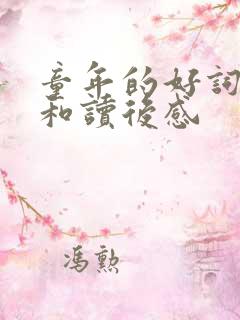 童年的好詞
和讀後感
馮勲